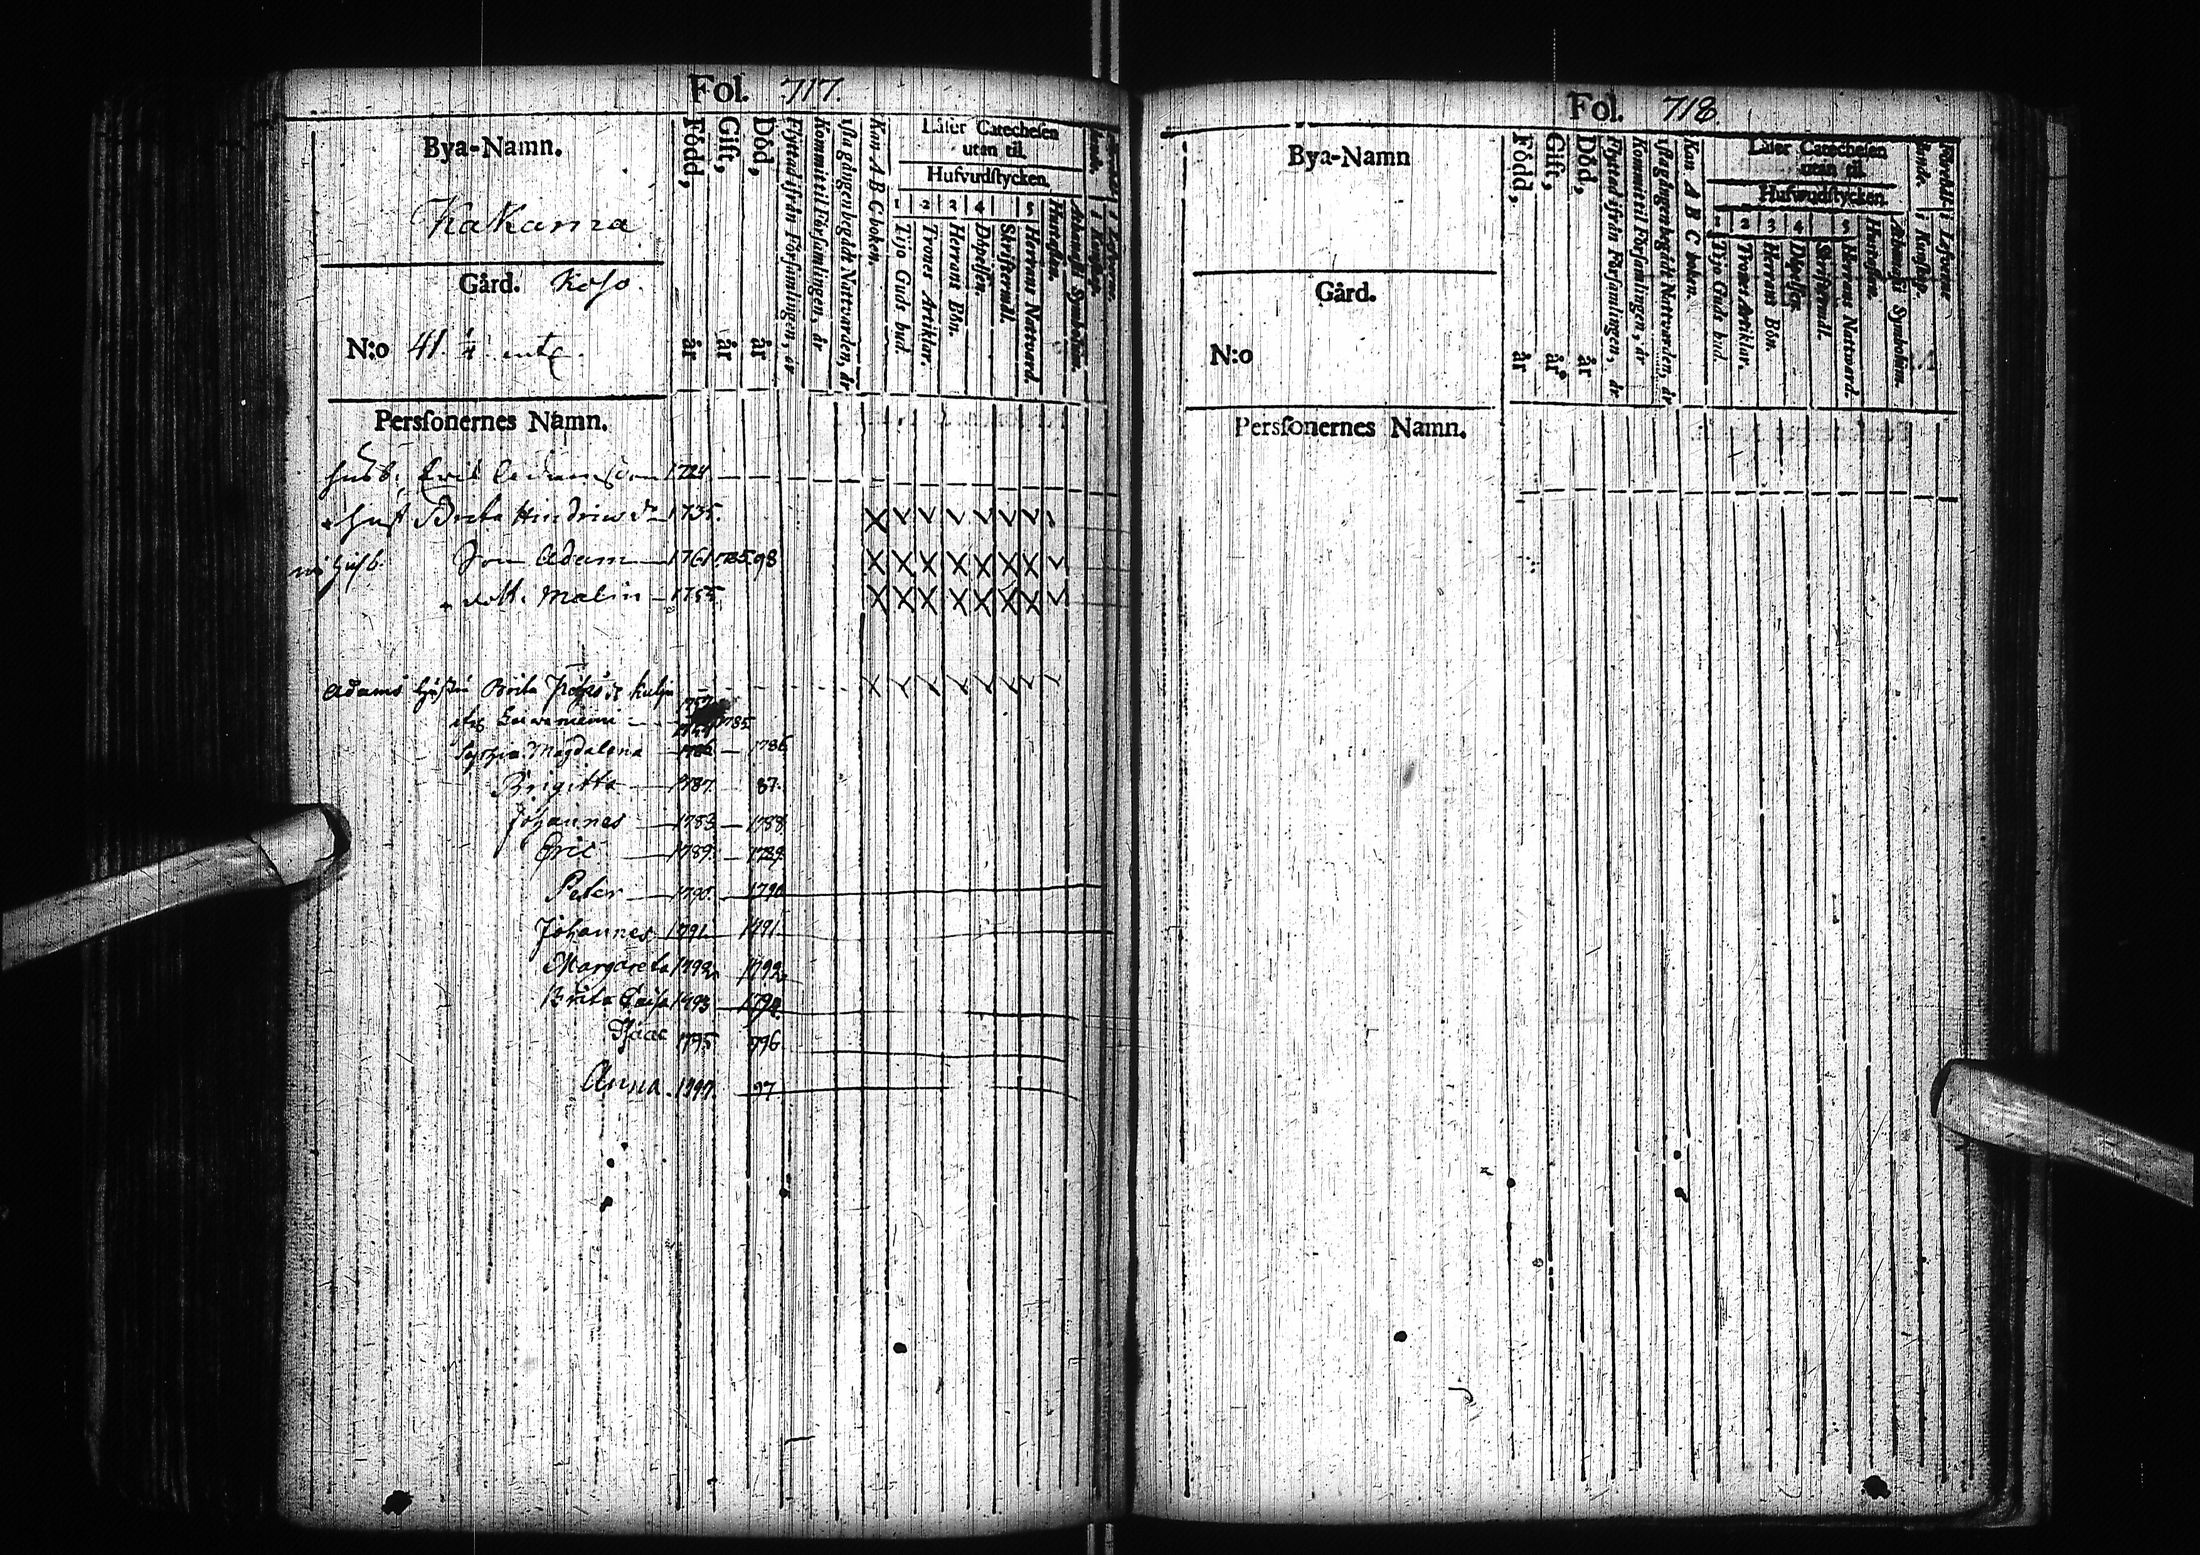 Fol. 717.
Bya-Namn.
Kakama
Gård. Koso.
N:o 41. 1/4
Född, år
Gift, år
Död, år
Flyttad ifrån Församlingen, år
Kommit til Församlingen, år
1sta gången begådt Nattvarden, år
Kan A B C boken.
Läser Catechesen
utan til.
Hufvudstycken.
1 2 3 4 5
Tijo Guds bud.
Trones Artiklar.
Herrans Bön.
Döpelsen.
Skriftermål.
Herrans Nattvard.
Hustaflan.
Athanasii Symbolum.
i Kunskap.
Personernes Namn.
Erik Adamsson 1724
hust Brita Hindrics dr 1735.
Son Adam 1761. 1785 98
dott. Malin 1755
Adams hustru Brita
1785
Magdalena 1786 1786
Brigitta 1787. 87.
Johannes 1783 1788
Eric 1789. 1789
Peter 1790. 1790
Johannes 1791 1791
Margareta 1792 1792
Brita Caisa 1793 1794
Isaac 1795 796
Anna. 1797. 97
Fol. 718.
Bya-Namn
Gård.
N:o
Född, år
Gift, år
Död, år
Flyttad ifrån Församlingen, år
Kommit til Församlingen, år
1sta gången begådt Nattvarden, år
Kan A B C boken.
Läser Catechesen
utan til.
Hufwudstycken.
1 2 3 4 5
Tijo Guds bud.
Trones Artiklar.
Herrans Bön.
Döpelsen.
Skriftermål.
Herrans Nattward.
Hustaflan.
Athanasii Symbolum.
i Kunskap.
i Lefverne
Personernes Namn.